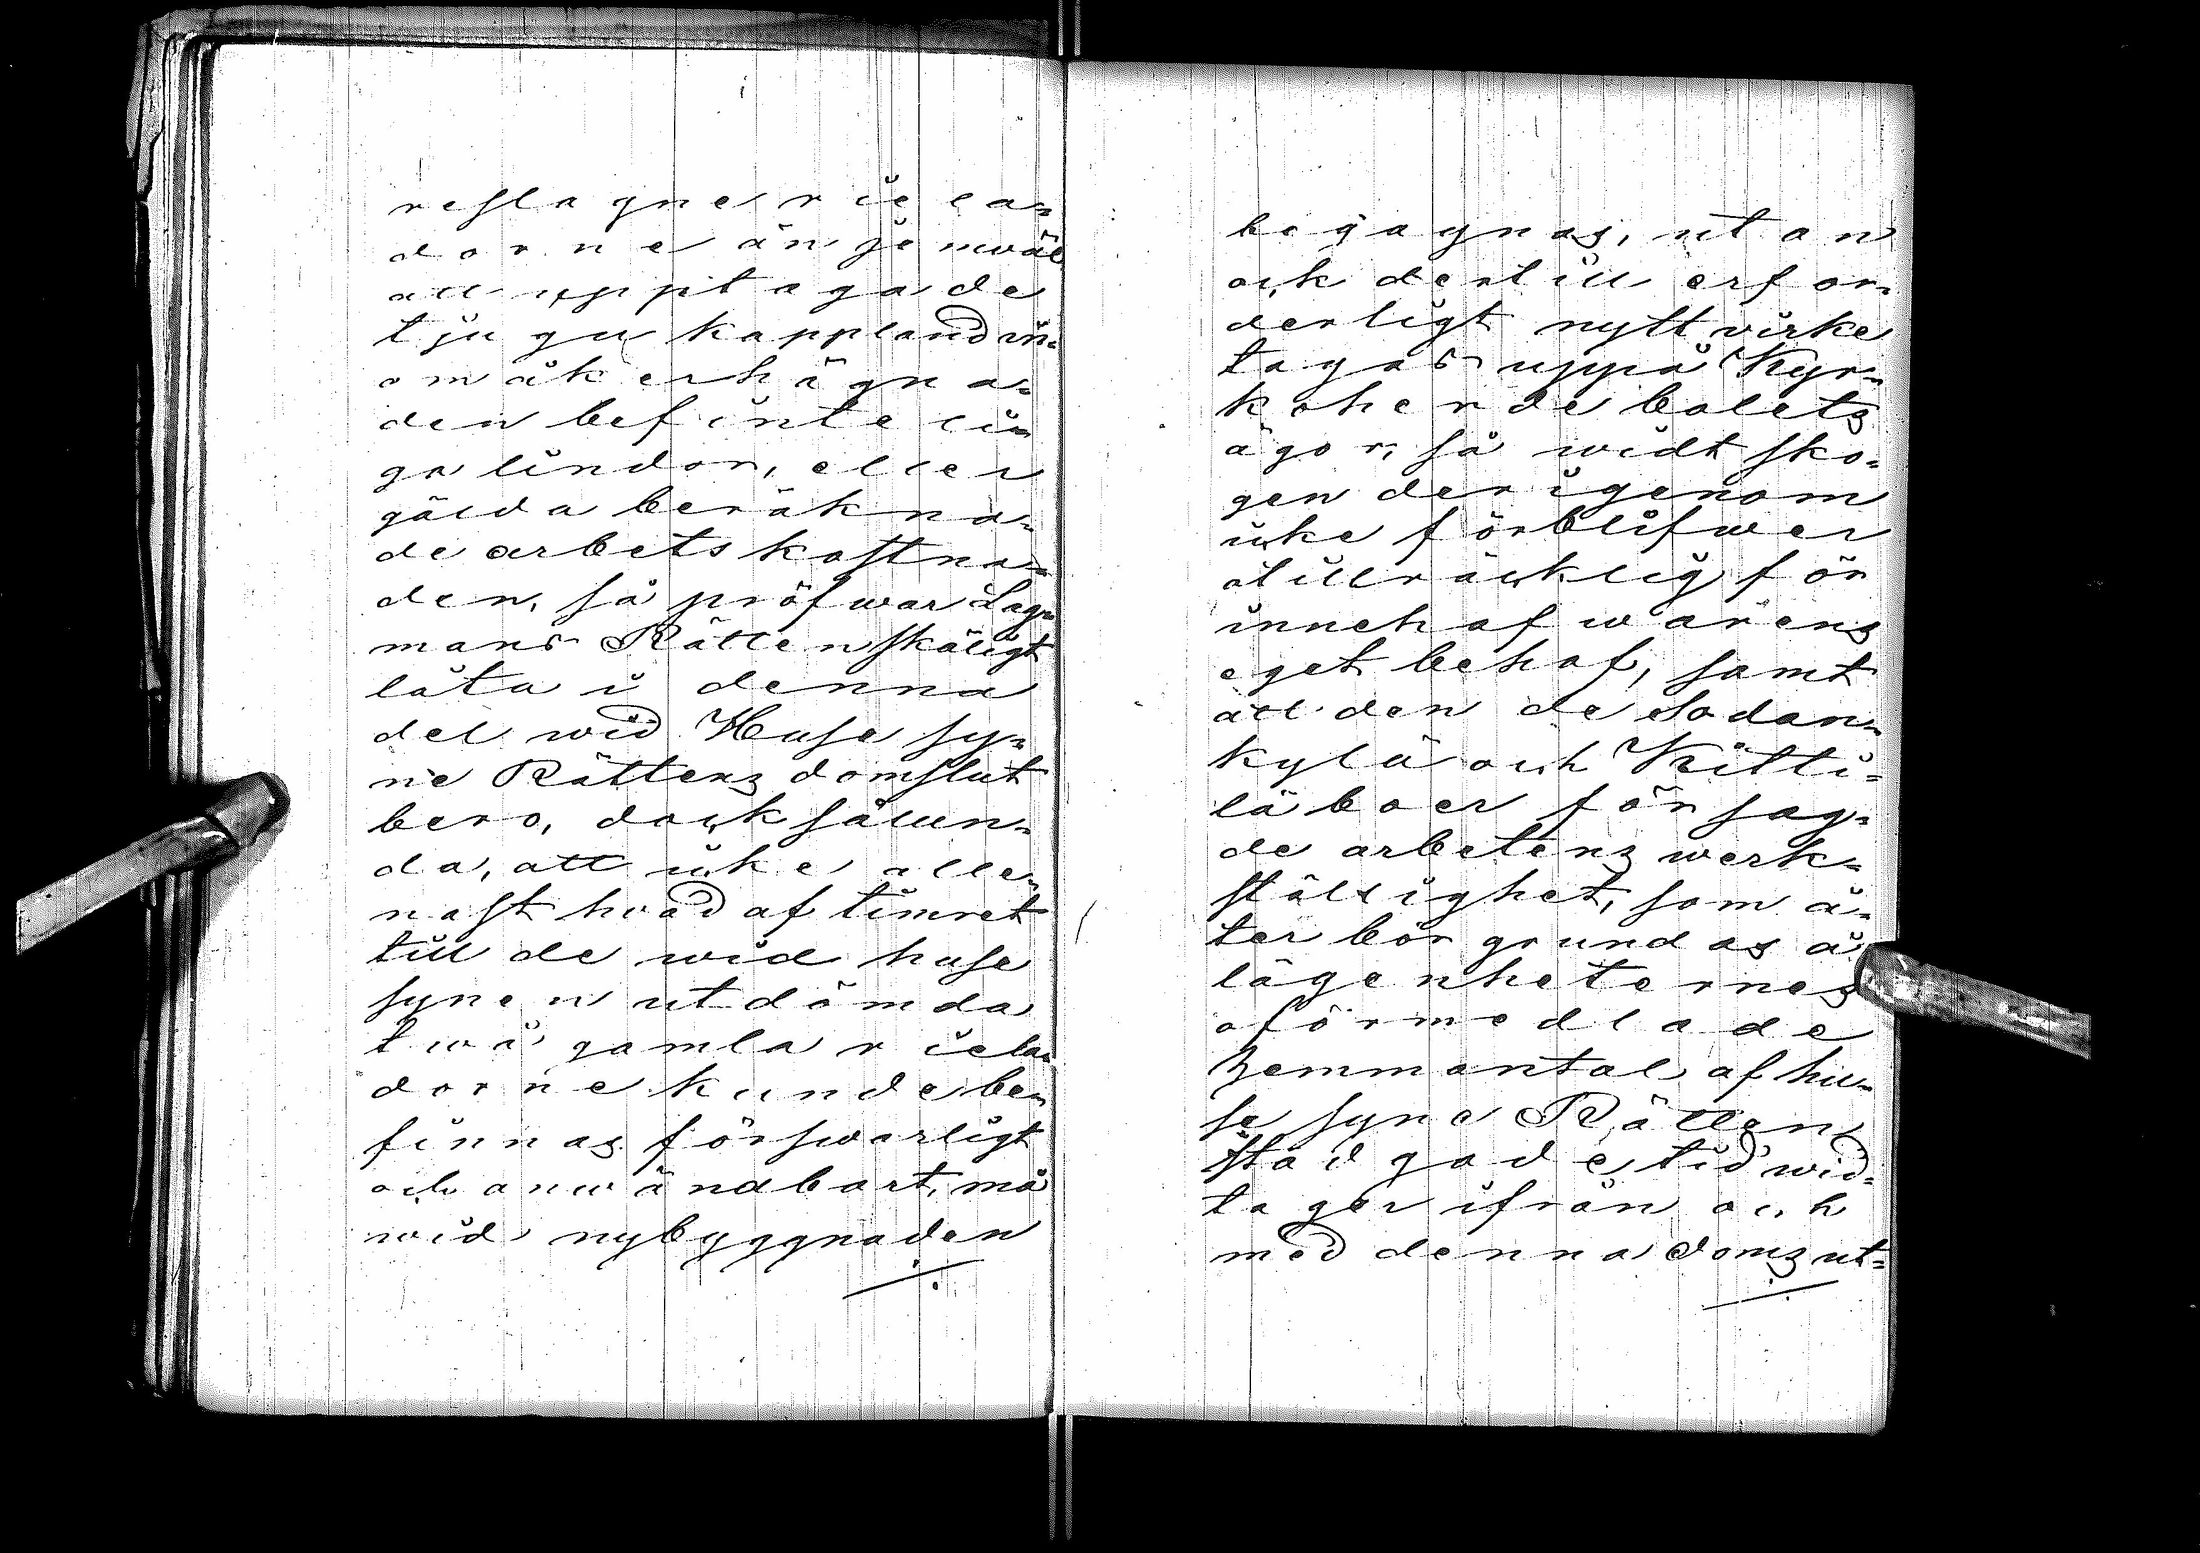 reslagne riela=
dorne än jemwäl
all upptagade
tjugu kappland in=
om åkerhägna=
den befinteli=
ga lindor, eller
gälda beräkna=
de arbetskostna=
den, så pröfwar Lag=
mans Rätten skäligt
låta i denna
del wid Huse sy=
ne Rättens domslut
bero, dock sålun=
da, att icke alle=
nast hvad af timret
till de wid huse
synen utdömda
twå gamla riela=
dorne kunde be=
finnas förswarligt
och anwändbart, må
wid nybyggnaden
./.
begagnas, utan
ock dertill erfor=
derligt nytt virke
tagas uppå Kyr=
koherde bolets
ägor, så widt sko=
gen derigenom
icke förblifwer
otillräcklig för
innehafwarens
eget behof, samt
att den de Sodan=
kylä och Kitti=
lä boer för sag=
de arbetens werk=
ställighet, som å=
ter bör grundas å
lägenheternes
oförmedlade
hemmantal af hu=
se syne Rätten
stadgade tid wid=
tager ifrån och
med denna doms ut=
./.